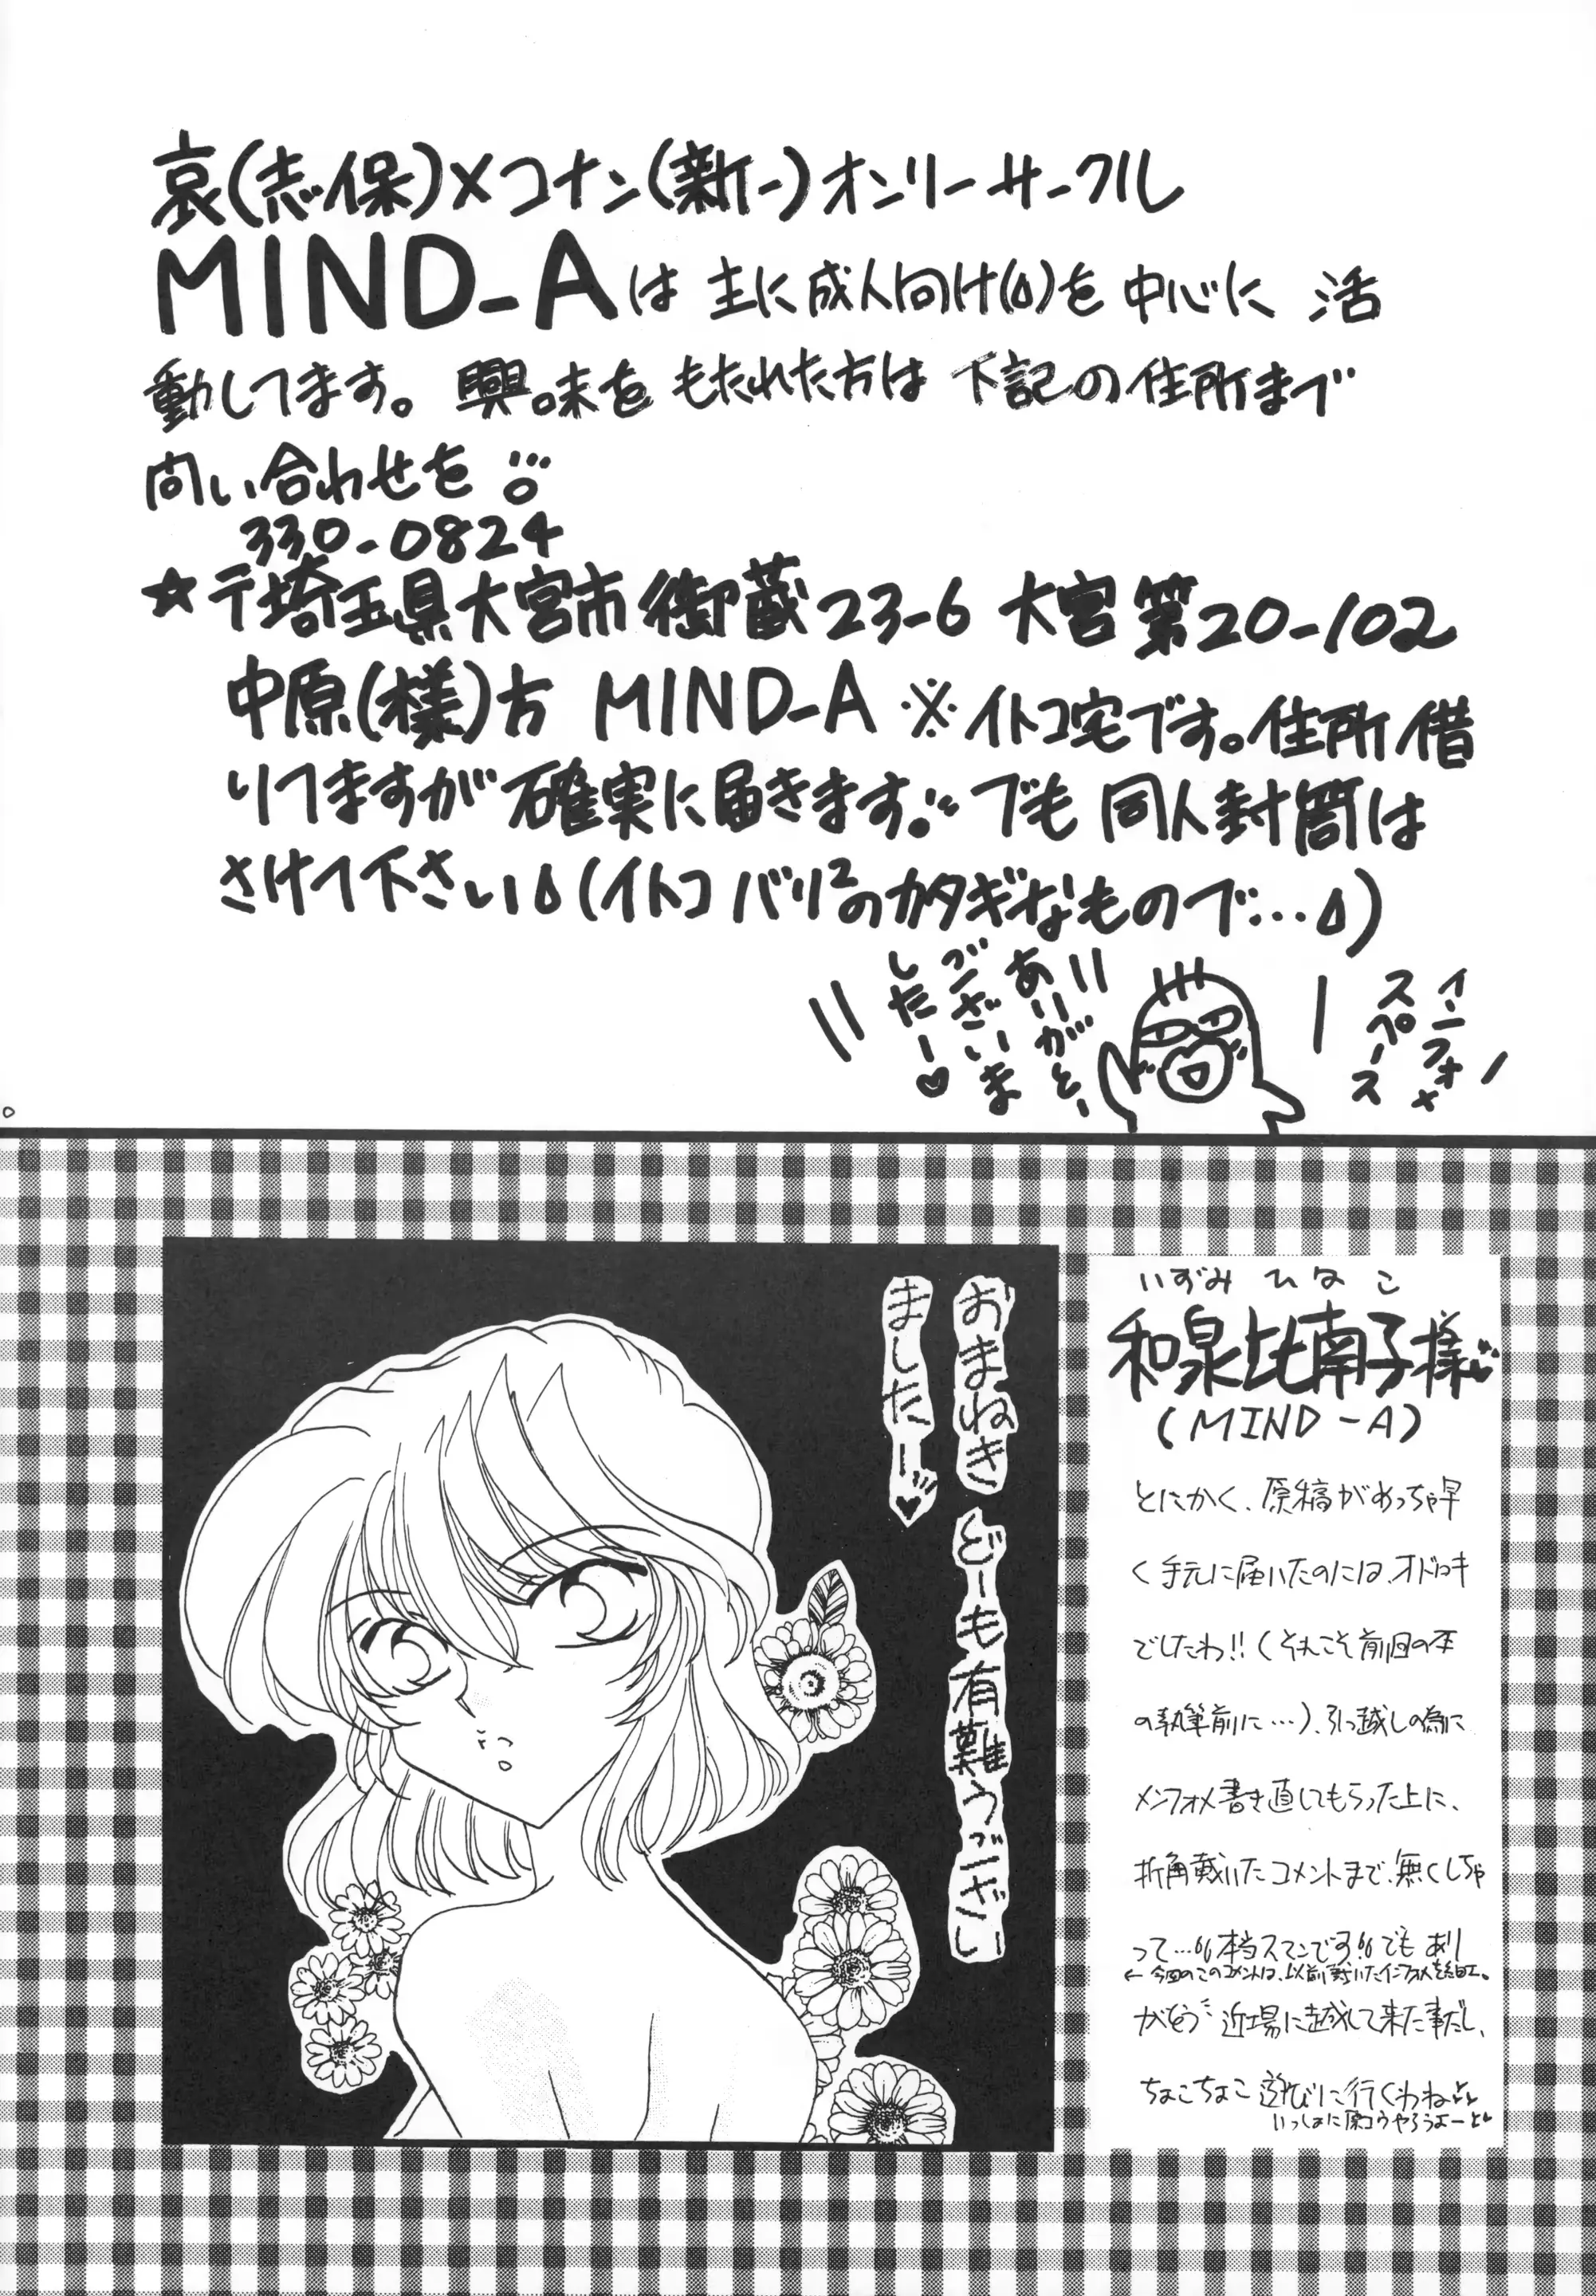 哀(志保)×コナン(新一)オンリーサークル
MIND-Aは 主に成人向け(͡)を 中心に 活
動してます。興味を もたれた方は 下記の住所まで
問い合わせを
330-0824
★〒埼玉県大宮市御蔵23-6 大宮第20-102
中原(様)方 MIND-A ※イトコ宅です。住所借
りてますが確実に届きます。でも 同人封筒は
さけて下さい(イトコ バリ²のカタギなもので…)
インフォ×
スペース
ありがとー
ございま
したー♥
おまねき どーも有難うござい
ましたー♥
いずみ ひなこ
和泉比南子様
(MIND-A)
とにかく、原稿がめっちゃ早
く手元に届いたのには、オドロキ
でしたわ!!(それこそ前回の本
の執筆前に…)、引っ越しの為に
インフォメ書き直してもらった上に、
折角戴いたコメントまで、無くしちゃ
って…本当スマンです でも あり
←今回のこのコメントは、以前戴いたインフォを
がとう 近場に越して来た事だし、
ちょこちょこ 遊びに行くわね
いっしょに原コウやろうよー